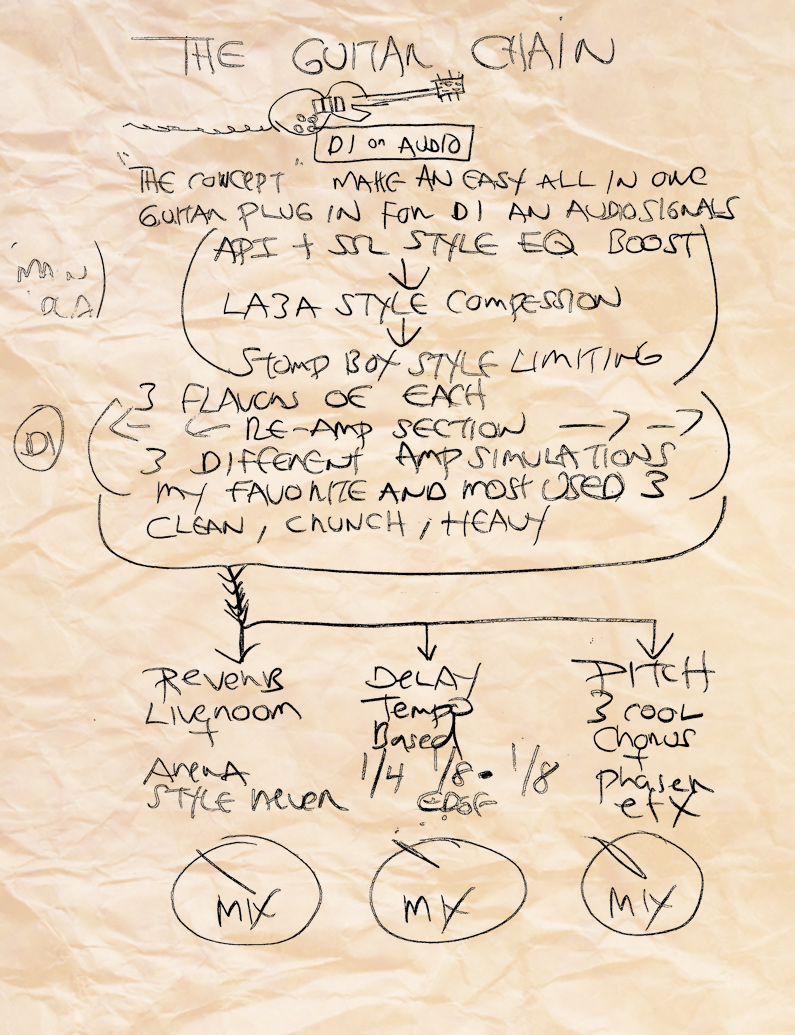 THE GUITAR CHAIN
DI on AUDIO
"THE CONCEPT" MAKE AN EASY ALL IN ONE
GUITAR PLUG IN FOR DI AN AUDIOSIGNALS
API + SSL STYLE EQ BOOST
MAIN
LA3A STYLE COMPESSION
STOMP BOX STYLE LIMITING
3 FLAVORS OF EACH
DI
RE-AMP SECTION
3 DIFFERENT AMP SIMULATIONS
MY FAVORITE AND MOST USED 3
CLEAN, CRUNCH, HEAVY
REVERB
Liveroom
+
ARENA
STYLE REVER
DELAY
Tempo
Based
1/4 1/8. 1/8
PITCH
3 COOL
Chorus
+
Phaser
efx
MIX
MIX
MIX